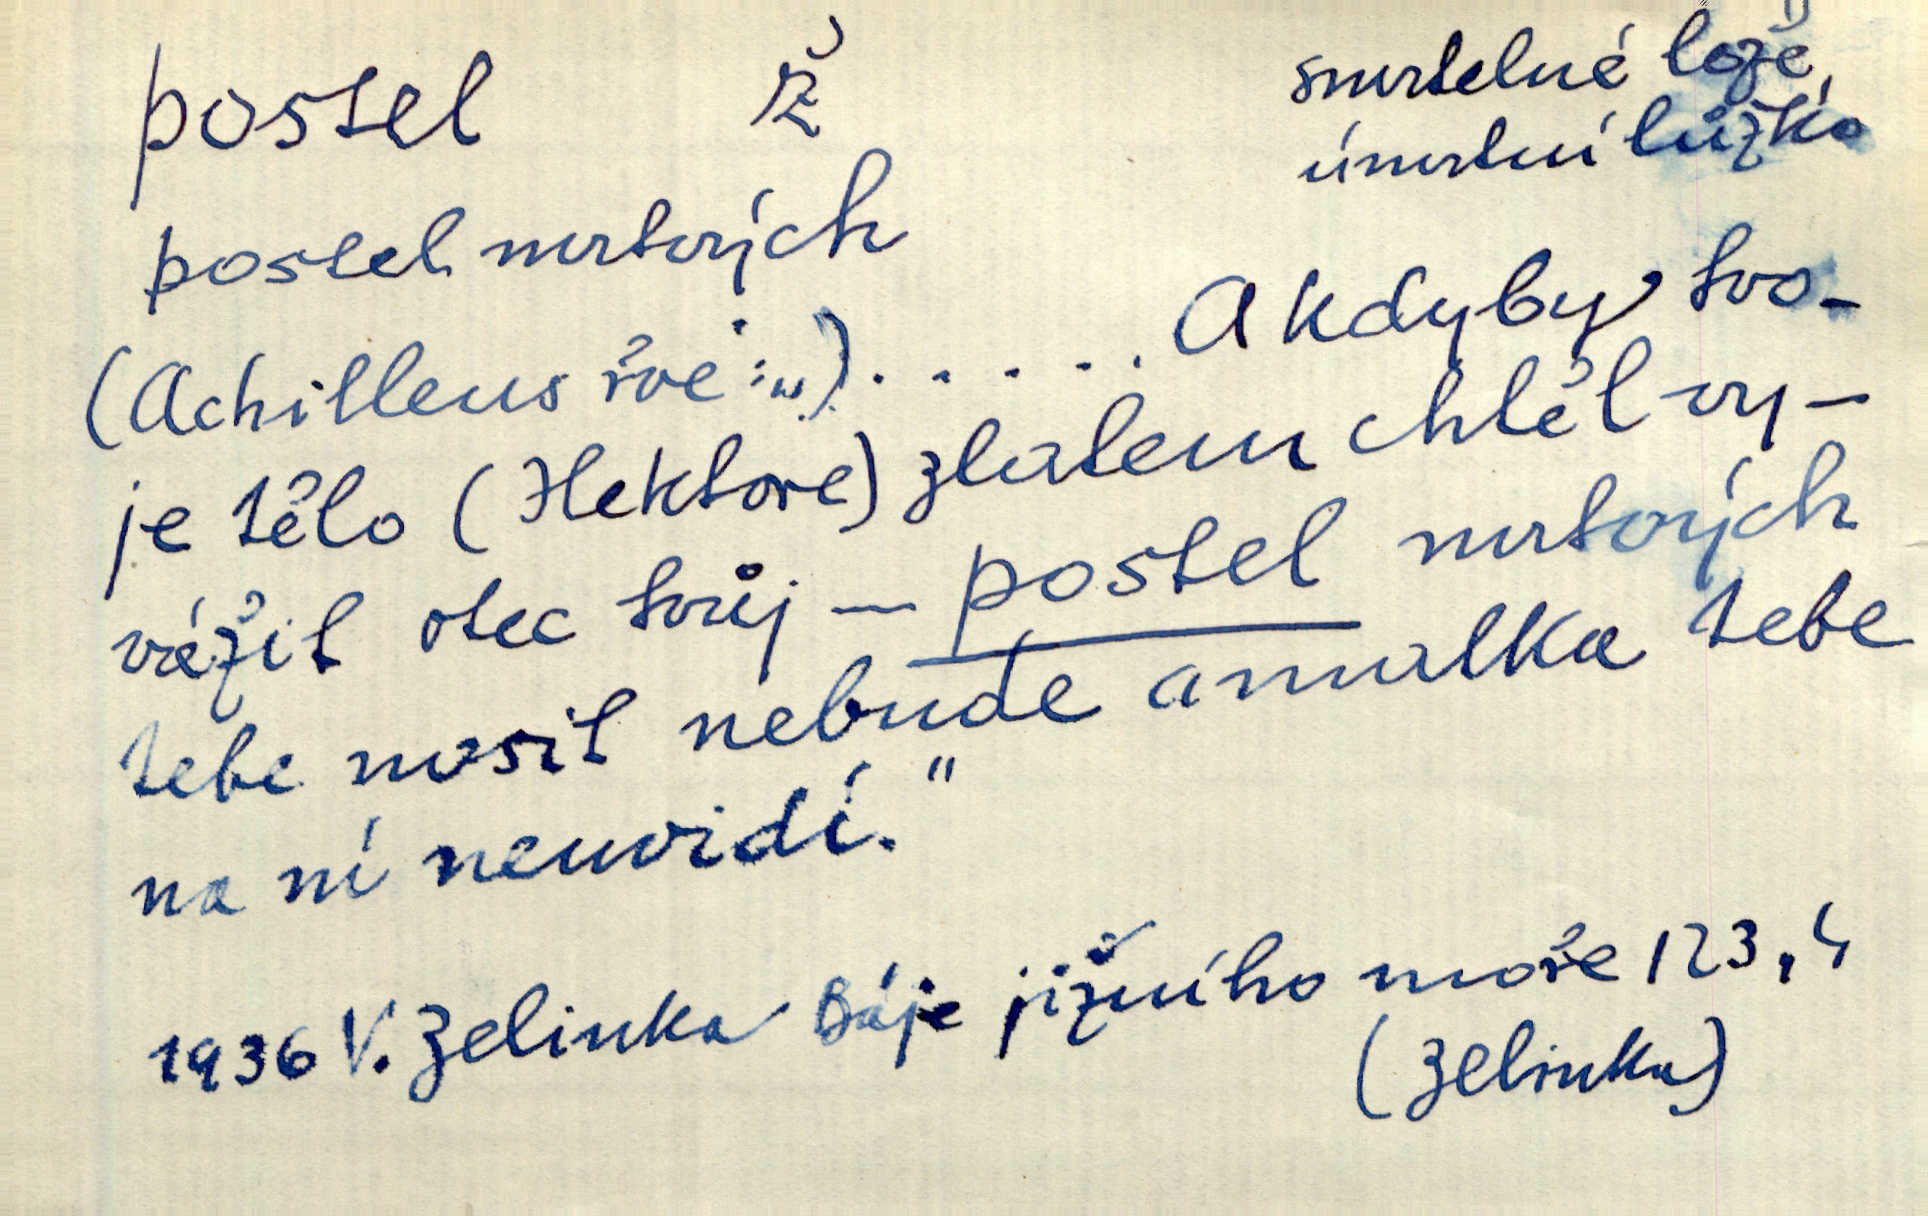 postel ž smrtelné lože,
úmrtní lůžko
postel mrtvých
(Achilleus řve: „) . . . . . A kdyby tvo-
je tělo (Hektore) zlatem chtěl vy-
vážit otec tvůj — postel mrtvých
tebe nosit nebude a matka tebe
na ní neuvidí."
1936 V. Zelinka Báje jižního moře 123, 4
(Zelinka)